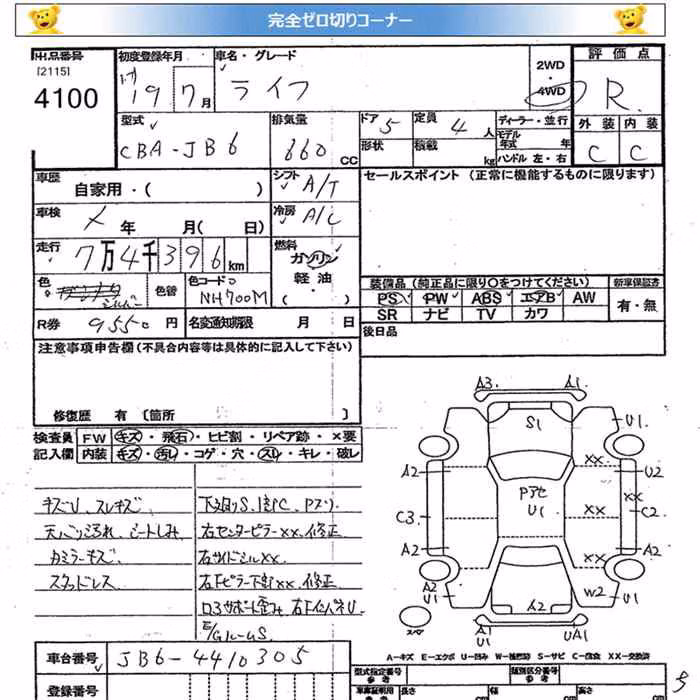 完全ゼロ切りコーナー
出品番号 初度登録年月 車名・グレード 2WD・4WD 評価点
[2115]
4100 19年 7月 ライフ R
型式 排気量 ドア 5 定員 4人 ディーラー・並行 外装 内装
CBA-JB6 660cc 形状 積載 kg モデル年式 年 ハンドル 左・右 C C
車歴 自家用・( ) シフト A/T セールスポイント (正常に機能するものに限ります)
車検 メ 年 月( 日) 冷房 A/C
走行 7万4千396km 燃料 ガソリン・軽油・( )
色 シルバー 色替 色コード NH700M 装備品 (純正品に限り○をつけてください) 新車保証書
PS PW ABS エアB AW 有・無
SR ナビ TV カワ
R券 9550円 名変通知期限 月 日 後日品
注意事項申告欄(不具合内容等は具体的に記入して下さい)
修復歴 有 [箇所 ]
検査員 FW キズ・飛石・ヒビ割・リペア跡・×要
記入欄 内装 キズ・汚れ・コゲ・穴・スレ・キレ・破レ
キズU、スレキズ 下廻りS、
シートしみ 右センターピラーXX、修正
ミラーキズ 右サイドシルXX
スタッドレス 右Fピラー下部XX 修正
コアサポート歪み
E/GルームS
A3 A1
S1 U1
XX
A2 U2
Pアセ XX XX
U1
C3 C2
A2 XX A2
A2 A2 W2 U1
U1
スペア A1 UA1
U1
A-キズ E-エクボ U-凹み W-補修跡 S-サビ C-腐食 XX-交換済
車台番号 JB6-4410305 型式指定番号 類別区分番号
参考 参考
登録番号 長さ 幅 高さ